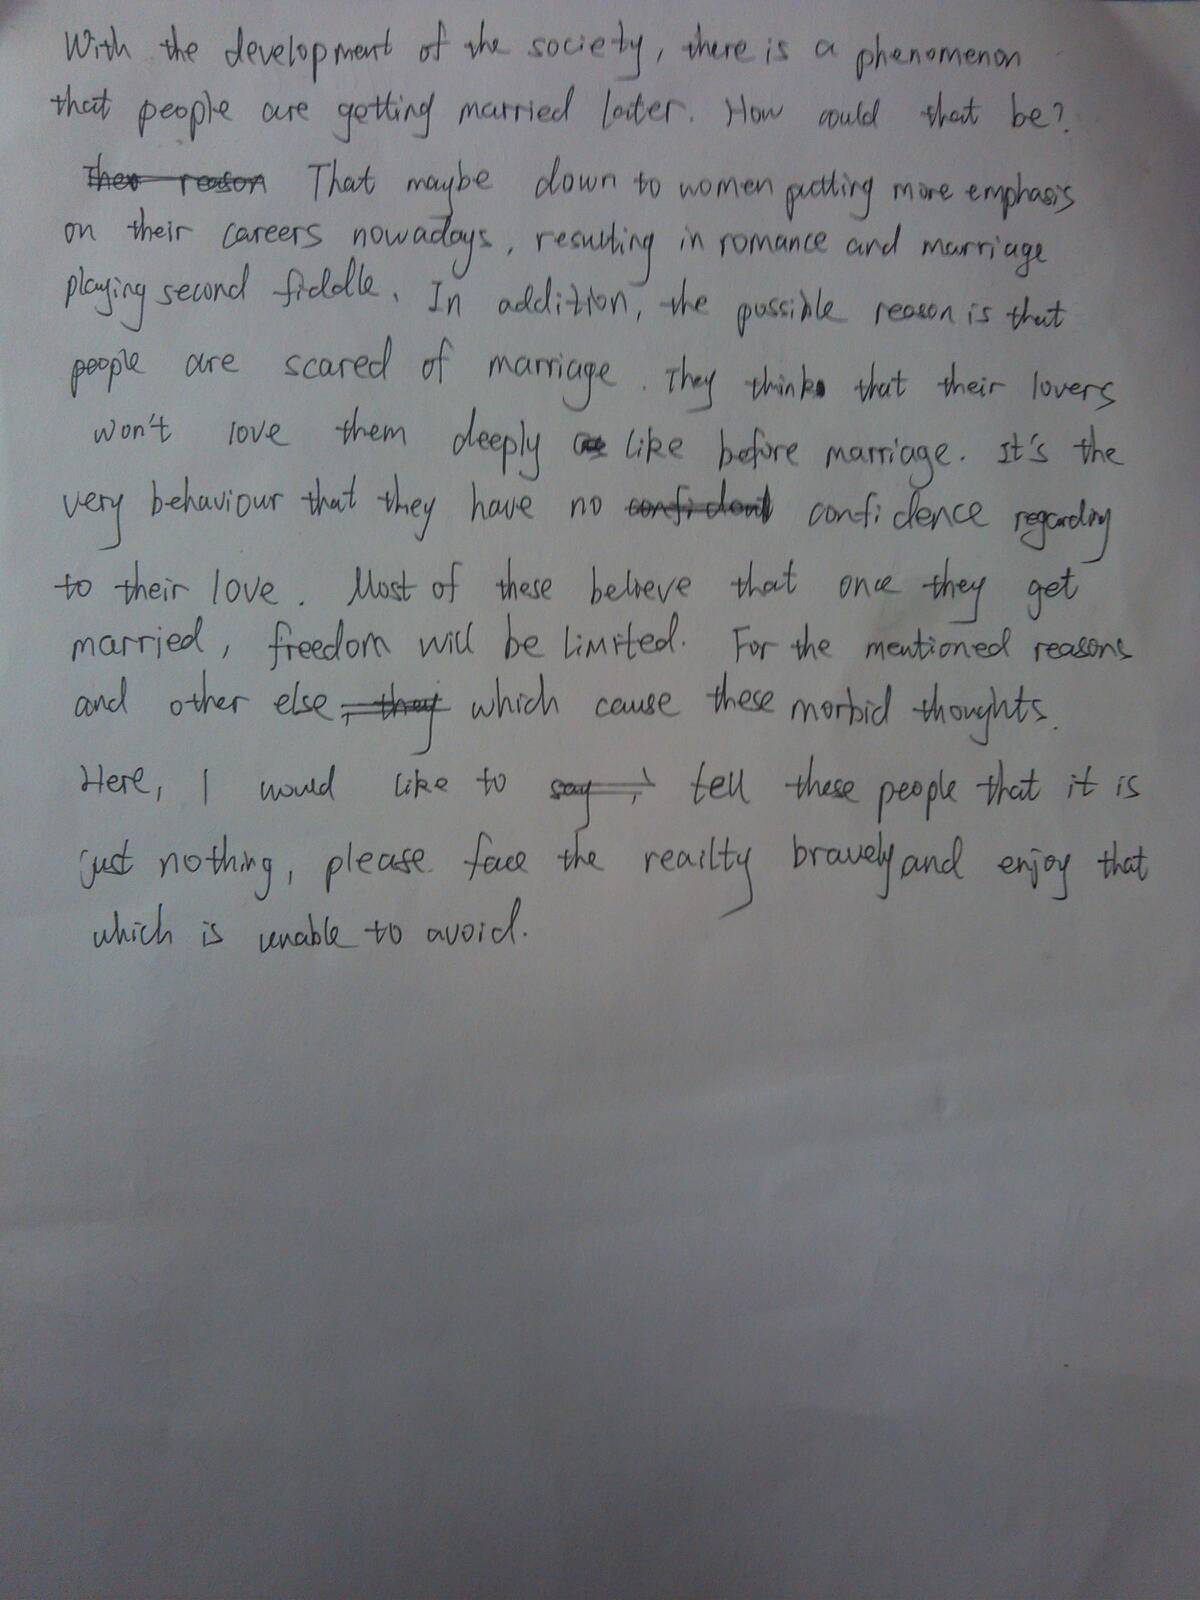 With the development of the society, there is a phenomenon
that people are getting married later. How could that be?
That maybe down to women putting more emphasis
on their careers nowadays, resulting in romance and marriage
playing second fiddle. In addition, the possible reason is that
people are scared of marriage. They think that their lovers
won't love them deeply like before marriage. It's the
very behaviour that they have no confidence regarding
to their love. Most of these believe that once they get
married, freedom will be limited. For the mentioned reasons
and other else which cause these morbid thoughts.
Here, I would like to tell these people that it is
just nothing, please face the reailty bravely and enjoy that
which is unable to avoid.